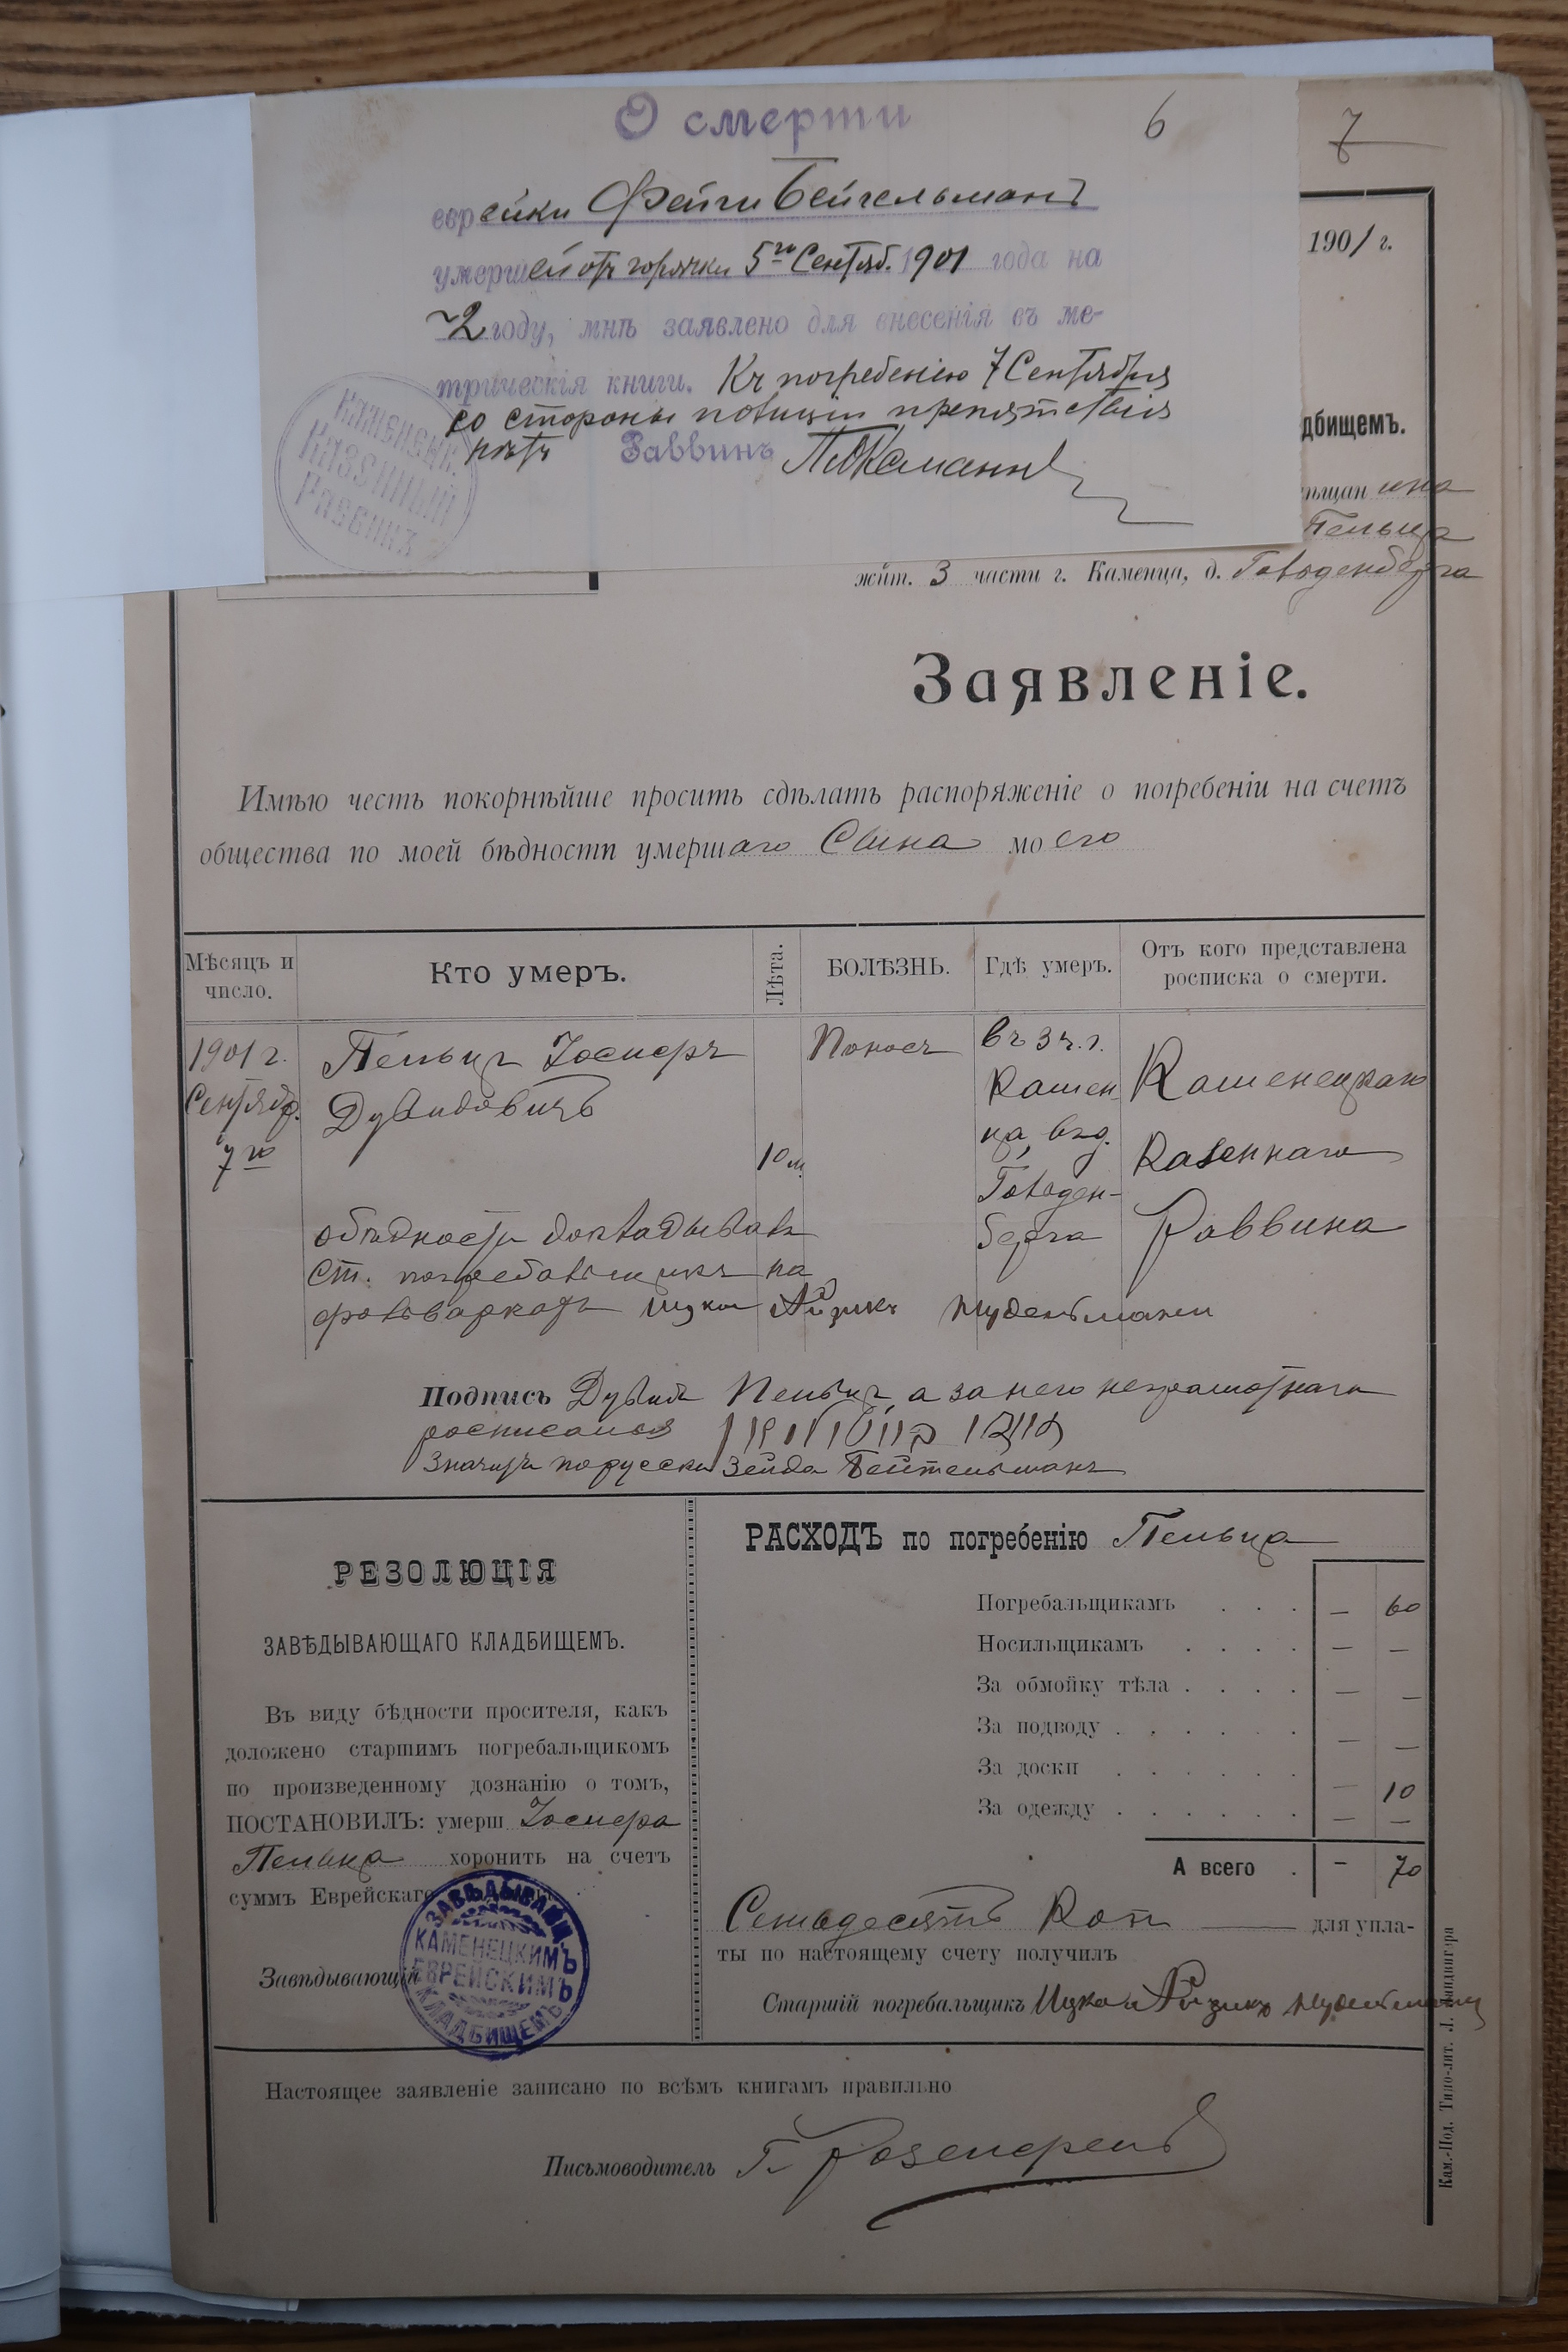 О смерти
6
7
еврейки Фейги Бейгельманъ
умершей отъ горячки 5го Сентяб. 1901 года на
2 году, мнѣ заявлено для внесенія въ ме-
трическія книги. Къ погребенію 7 Сентября
со стороны полиціи препятствія
нѣтъ Раввинъ
КАМЕНЕЦ.
КАЗЕННЫЙ
РАВВИНЪ
1901 г.
дбищемъ.
ѣщанина
Пельца
жит. 3 части г. Каменца, д. Гольденберга
Заявленіе.
Имѣю честь покорнѣйше просить сдѣлать распоряженіе о погребеніи на счетъ
общества по моей бѣдности умершаго Сына моего
Мѣсяцъ и число.
Кто умеръ.
Лѣта.
БОЛѢЗНЬ.
Гдѣ умеръ.
Отъ кого представлена росписка о смерти.
1901 г.
Сентябр.
7го
Пельцъ Іосиеръ
Дувидовичъ
10 м.
Поносъ
въ 3 ч. г.
Камен-
ца, в д.
Гольден-
берга
Каменецкаго
Казеннаго
Раввина
о бѣдности докладывалъ
Ст. погребальщикъ на
фольваркахъ Ицко Айзикъ Нудельманъ
Подпись Дувидъ Пельцъ, а за него неграмотнаго
росписался זיידא בייטעלמאן
Значитъ порусски Зейда Бейтельманъ
РЕЗОЛЮЦІЯ
ЗАВѢДЫВАЮЩАГО КЛАДБИЩЕМЪ.
Въ виду бѣдности просителя, какъ
доложено старшимъ погребальщикомъ
по произведенному дознанію о томъ,
ПОСТАНОВИЛЪ: умерш Іосиера
Пельца хоронить на счетъ
суммъ Еврейскаго
Завѣдывающій
ЗАВѢДЫВАЮЩ.
КАМЕНЕЦКИМЪ
ЕВРЕЙСКИМЪ
КЛАДБИЩЕМЪ
РАСХОДЪ по погребенію Пельца
Погребальщикамъ . . . — 60
Носильщикамъ . . . . — —
За обмойку тѣла . . . . — —
За подводу . . . . . — —
За доски . . . . . — 10
За одежду . . . . . — —
А всего . — 70
Семьдесятъ Коп — для упла-
ты по настоящему счету получилъ
Старшій погребальщикъ Ицко Айзикъ Нудельманъ
Настоящее заявленіе записано по всѣмъ книгамъ правильно
Письмоводитель Г. Розенфельд
Кам.-Под. Типо-лит. Л.